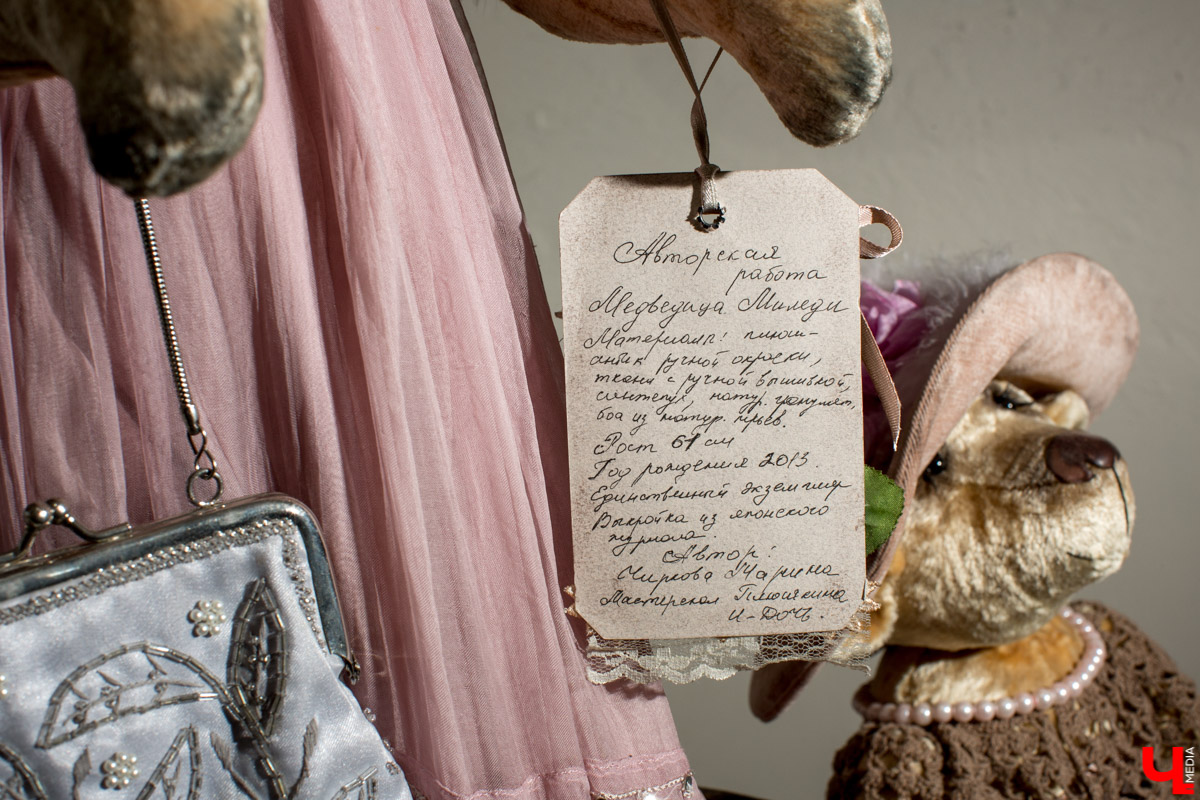 Авторская
работа
Медведица Миледи
Материалы: плюш-
антик ручной окраски,
ткани с ручной вышивкой,
синтепух, натур. гранулят,
боа из натур. перьев.
Рост 61 см
Год рождения 2013.
Единственный экземпляр
Выкройка из японского
журнала.
Автор:
Чиркова Марина
Мастерская Плюшкина
и-Дочь.
Ч MEDIA